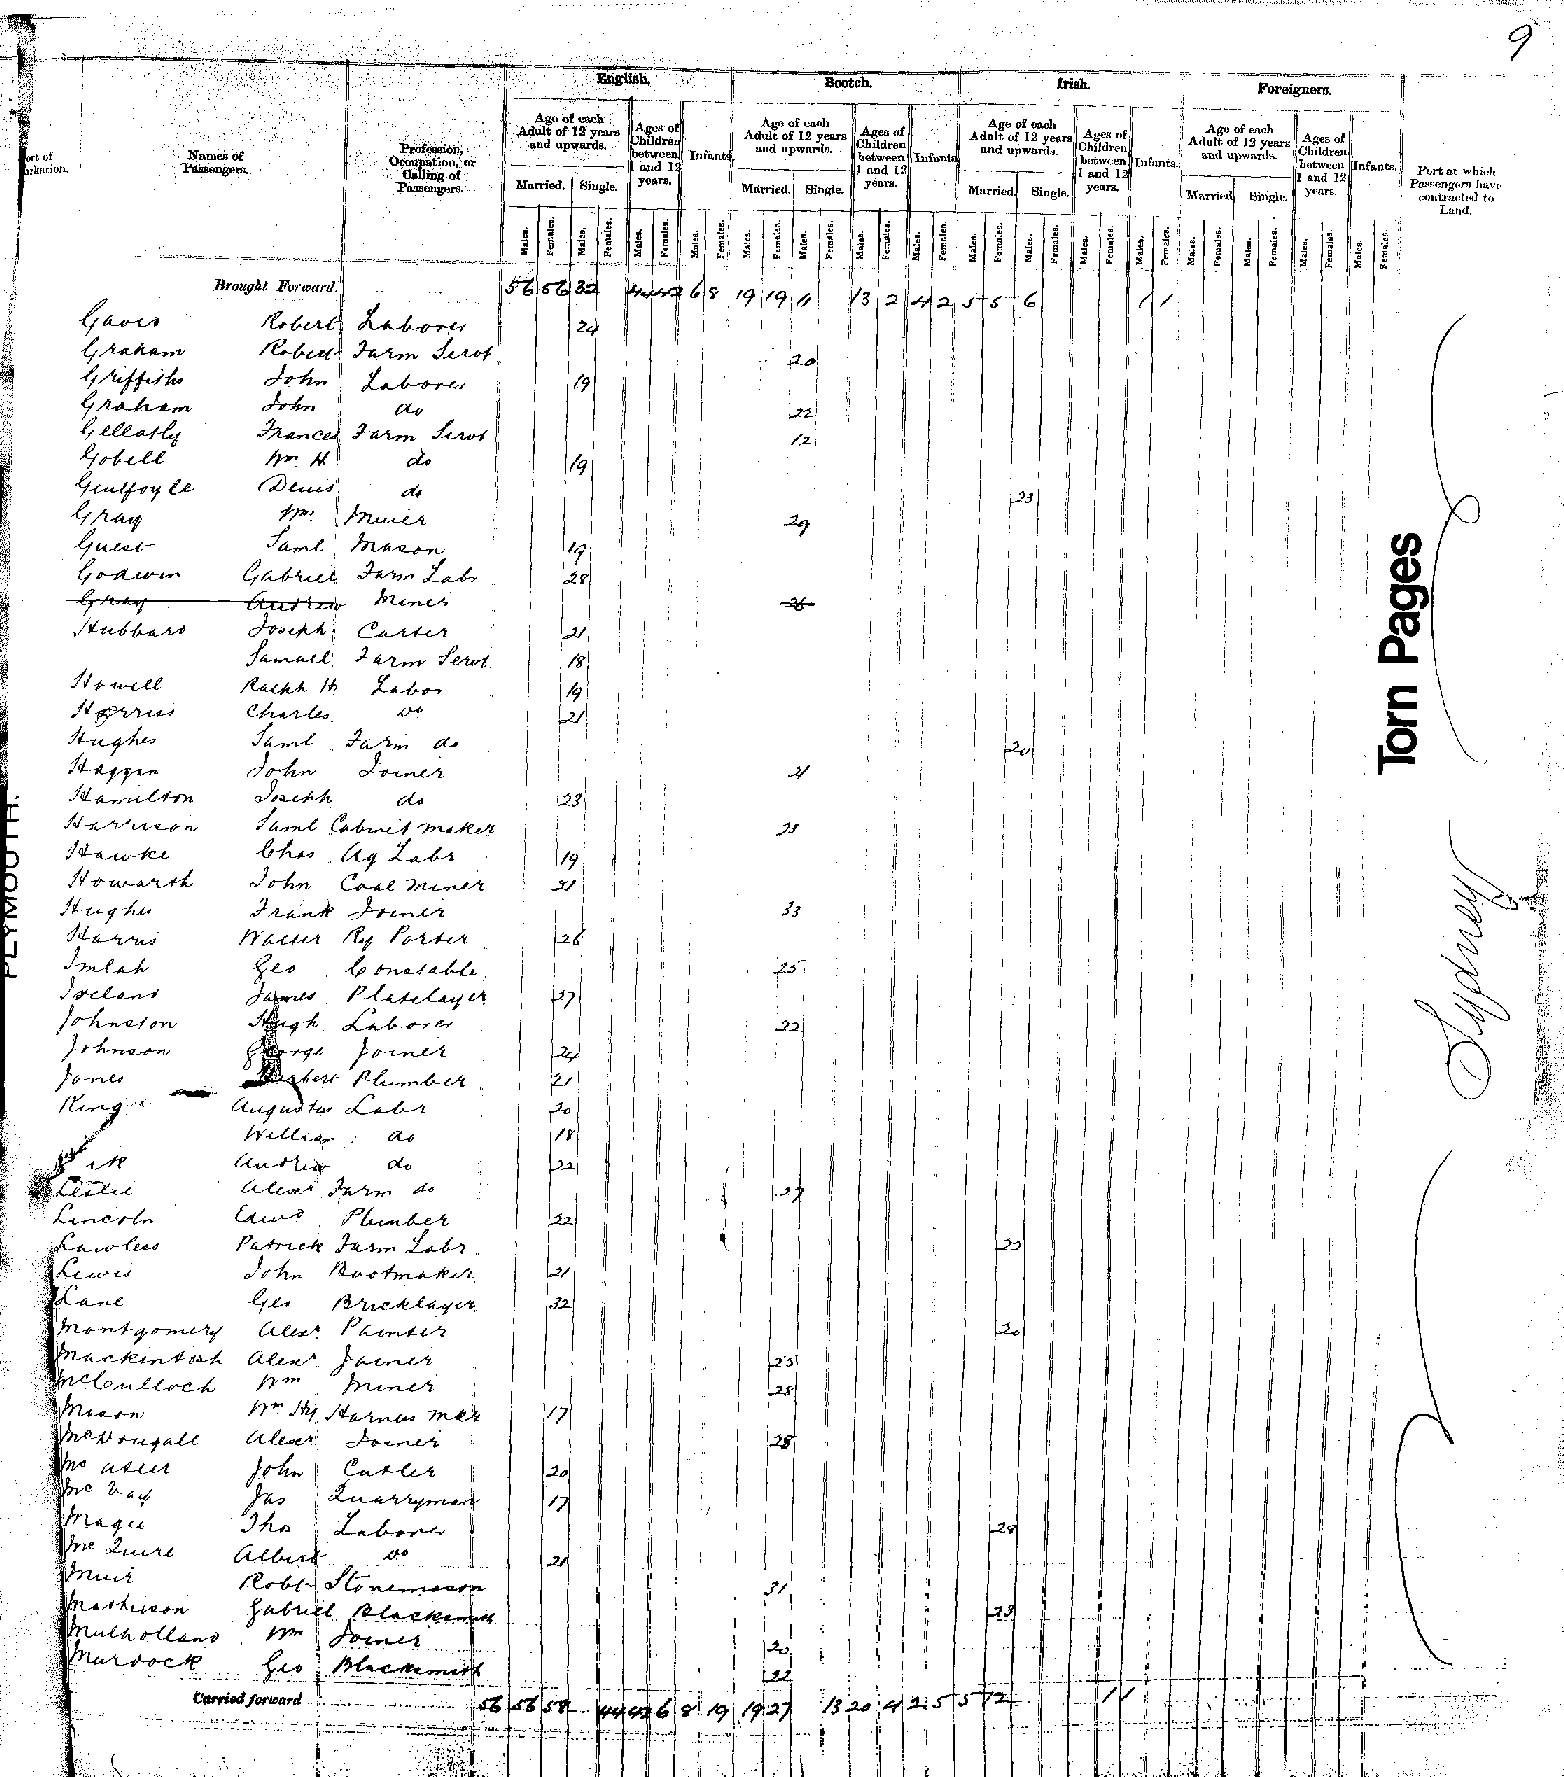 9
English. Scotch. Irish. Foreigners.
Names of Passengers. Profession, Occupation, or Calling of Passengers. Age of each Adult of 12 years and upwards. Ages of Children between 1 and 12 years. Infants. Age of each Adult of 12 years and upwards. Ages of Children between 1 and 12 years. Infants. Age of each Adult of 12 years and upwards. Ages of Children between 1 and 12 years. Infants. Age of each Adult of 12 years and upwards. Ages of Children between 1 and 12 years. Infants. Port at which Passengers have contracted to Land.
Married. Single. Married. Single. Married. Single. Married. Single.
Males. Females. Males. Females. Males. Females. Males. Females. Males. Females. Males. Females. Males. Females. Males. Females. Males. Females. Males. Females. Males. Females. Males. Females. Males. Females. Males. Females. Males. Females. Males. Females.
Brought Forward. 56 56 32 44 42 6 8 19 19 11 13 2 4 2 5 5 6 1 1
Robert Laborer 24
Graham Robert Farm Servt 20
Griffiths John Laborer 19
Graham John do 22
Gellatly Frances Farm Servt 12
Gobell Wm H do 19
Denis do 23
Gray Wm Miner 29
Guest Saml Mason 19
Godwin Gabriel Farm Labr 28
Gray Andrew Miner 26
Hubbard Joseph Carter 21
Samuel Farm Servt 18
Howell Ralph H Labor 19
Harris Charles do 21
Hughes Saml Farm do 20
John Joiner 21
Hamilton Joseph do 23
Harrison Saml Cabinet maker
Hawke Chas Ag Labr 19
Howarth John Coal Miner 21
Hughes Frank Joiner 33
Harris Walter Ry Porter 26
Imlah Geo Constable 25
Ireland James Platelayer 27
Johnston Hugh Laborer 22
Johnson George Joiner 24
Jones Herbert Plumber 21
King Augustus Labr 20
William do 18
Andrew do 22
Leslie Alexr Farm do 27
Lincoln Edwd Plumber 22
Lawless Patrick Farm Labr
Lewis John Bootmaker 21
Lane Geo Bricklayer 32
Montgomery Alexr Painter 20
Mackintosh Alexr Joiner 23
McCulloch Wm Miner 28
Mison Wm Hy Harness mkr 17
McDougall Alexr Joiner 28
John Cutler 20
Jas Quarryman 17
Magee Thos Laborer 28
McQuire Albert do 21
Muir Robt Stonemason 31
Mathieson Gabriel Blacksmith 23
Mulholland Wm Joiner 20
Murdock Geo Blacksmith 22
Carried forward 56 56 58 44 42 6 8 19 19 27 13 20 4 2 5 5 12 1 1
PLYMOUTH.
Torn Pages
Sydney